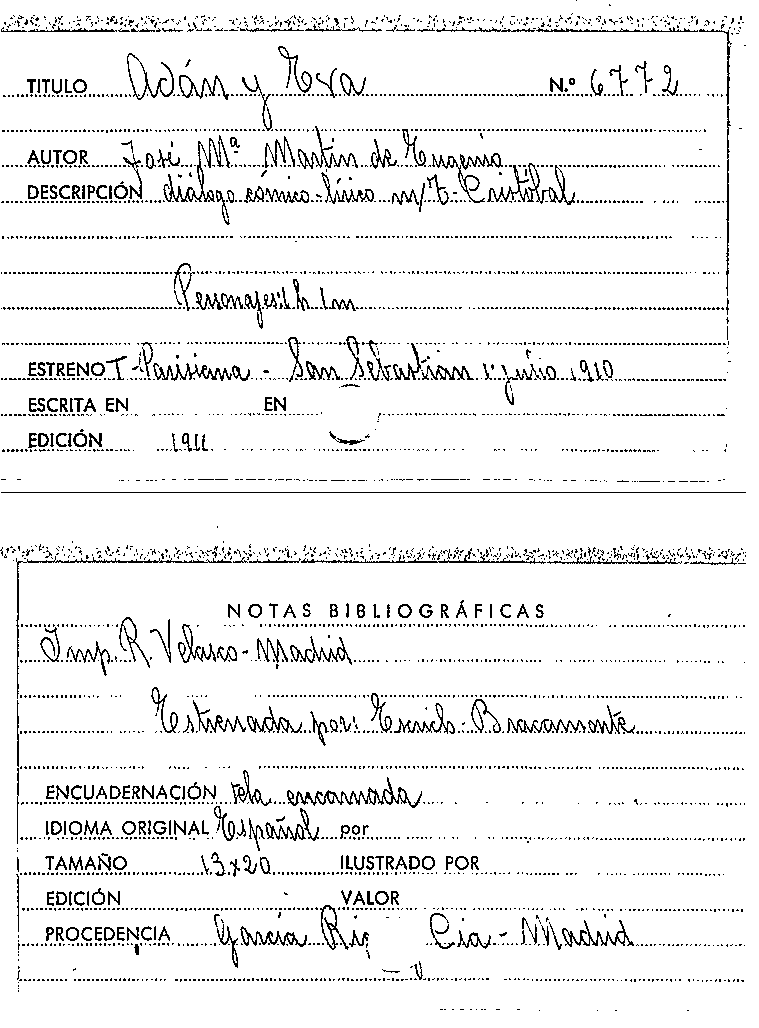 TITULO Adán y Eva N.º 6772
AUTOR José Mª Martín de Eugenio
DESCRIPCIÓN diálogo cómico-lírico m/ T. Cristóbal
Personajes: 1 h 1 m
ESTRENO T-Parisiana - San Sebastian 1: julio 1910
ESCRITA EN EN
EDICIÓN 1911
NOTAS BIBLIOGRÁFICAS
Imp. R. Velasco-Madrid
Estrenada por: Bracamonte
ENCUADERNACIÓN tela encarnada
IDIOMA ORIGINAL Español por
TAMAÑO 13x20 ILUSTRADO POR
EDICIÓN VALOR
PROCEDENCIA García Cia - Madrid